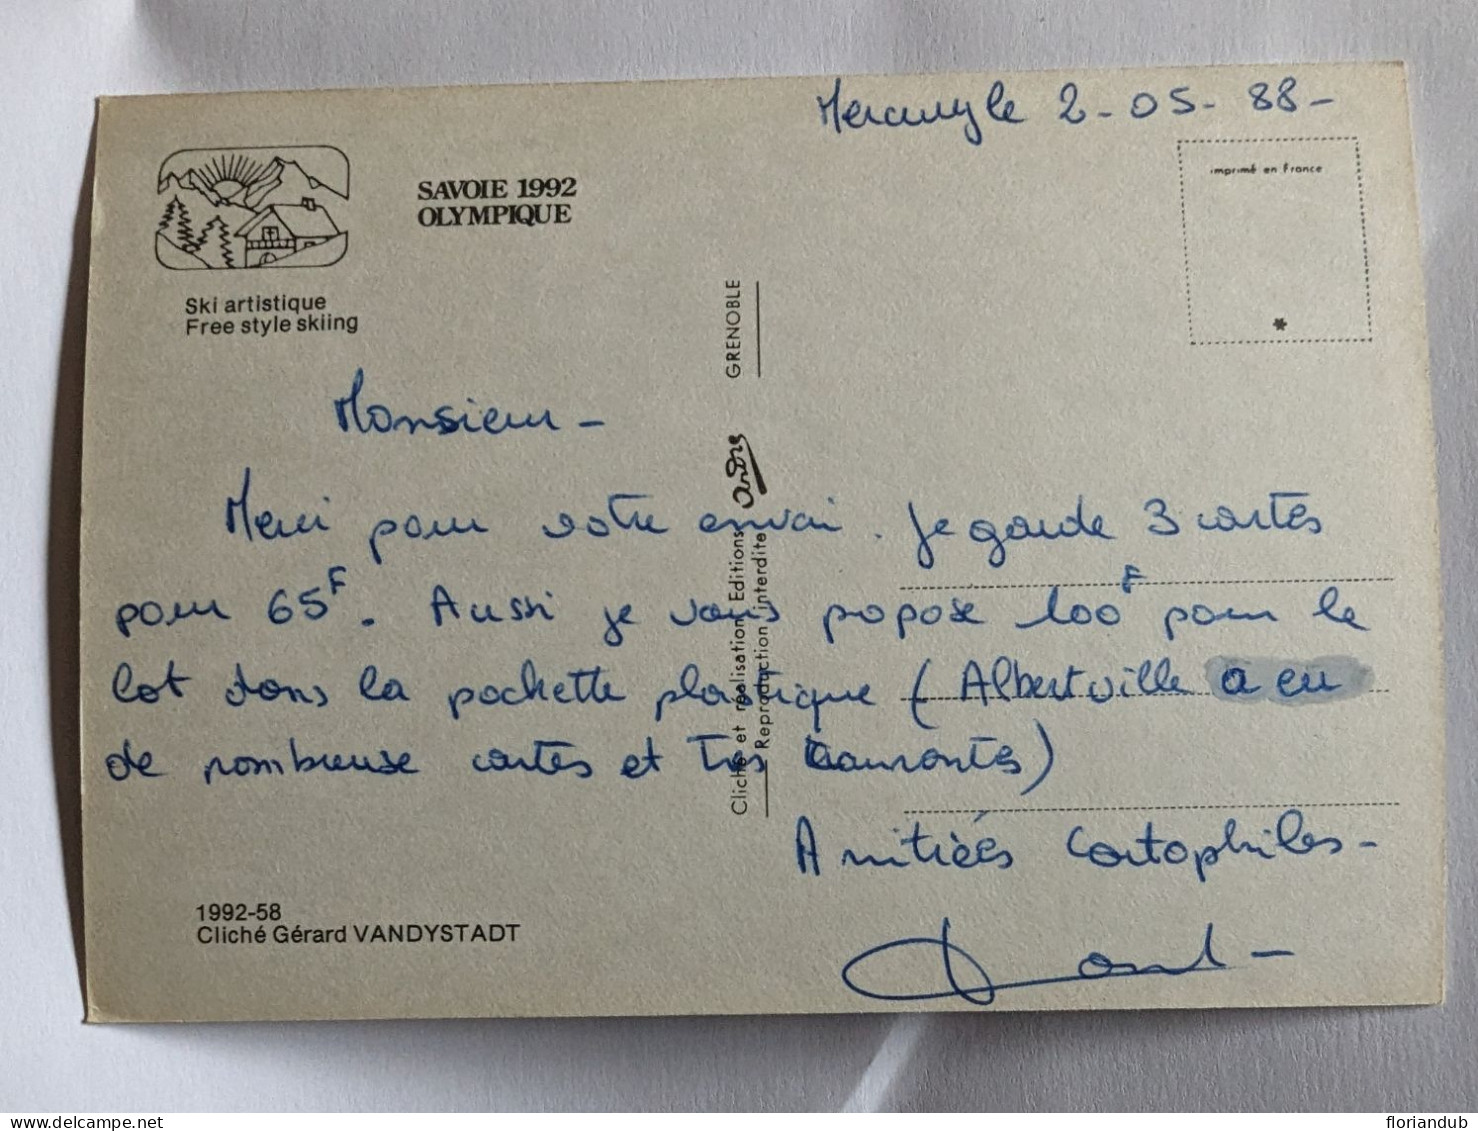 Mercury le 2-05-88-
imprimé en France
SAVOIE 1992
OLYMPIQUE
Ski artistique
Free style skiing
*
Monsieur -
Merci pour votre envoi. Je garde 3 cartes
pour 65F. Aussi je vous propose 100F pour le
lot dans la pochette plastique (Albertville a eu
de nombreuse cartes et très courantes)
Amitiées Cartophiles-
GRENOBLE
André
Cliché et réalisation Editions
Reproduction interdite
1992-58
Cliché Gérard VANDYSTADT
floriandub